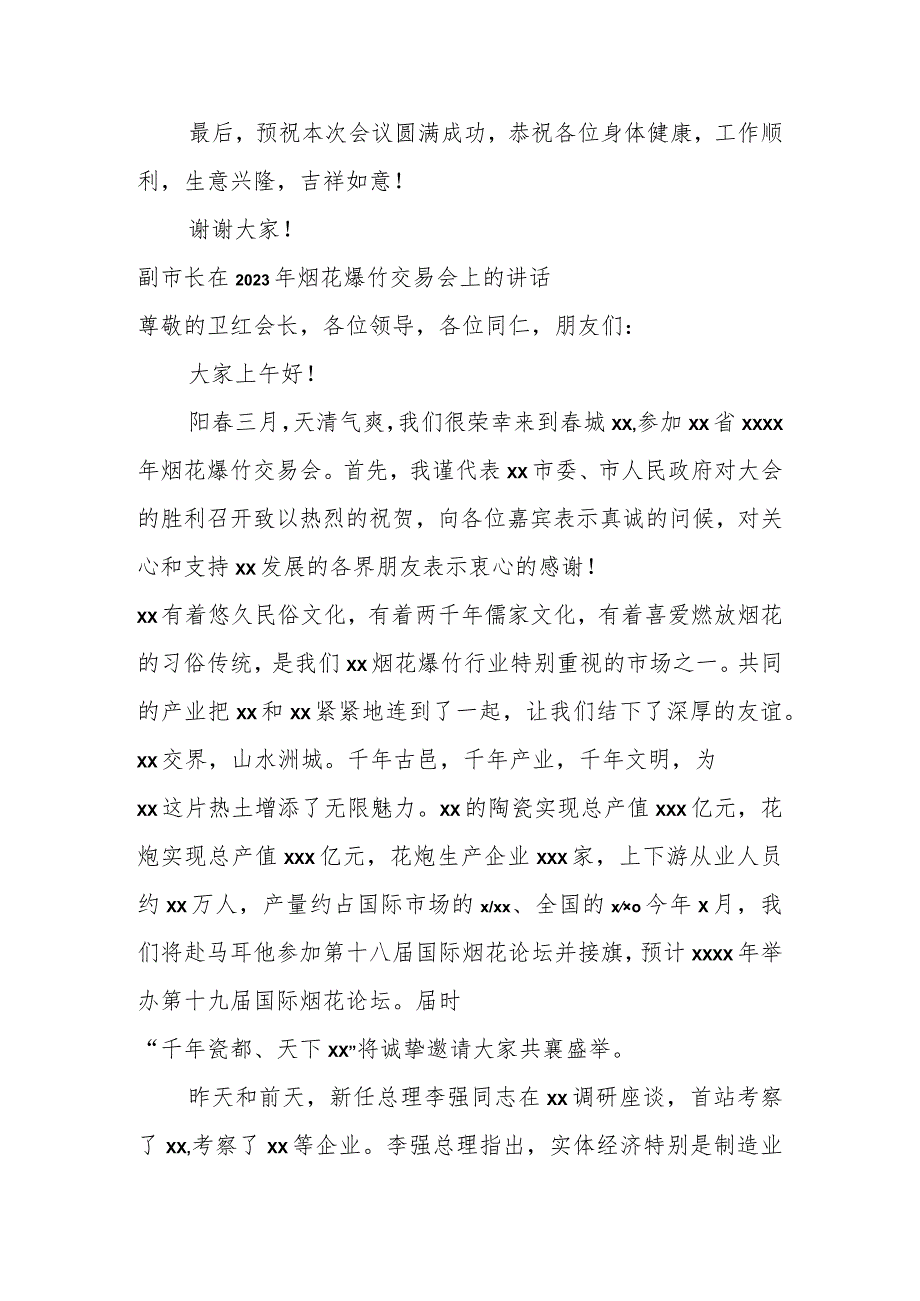 最后，预祝本次会议圆满成功，恭祝各位身体健康，工作顺
利，生意兴隆，吉祥如意！
谢谢大家！
副市长在2023年烟花爆竹交易会上的讲话
尊敬的卫红会长，各位领导，各位同仁，朋友们：
大家上午好！
阳春三月，天清气爽，我们很荣幸来到春城xx,参加xx省xxxx
年烟花爆竹交易会。首先，我谨代表xx市委、市人民政府对大会
的胜利召开致以热烈的祝贺，向各位嘉宾表示真诚的问候，对关
心和支持xx发展的各界朋友表示衷心的感谢！
xx有着悠久民俗文化，有着两千年儒家文化，有着喜爱燃放烟花
的习俗传统，是我们xx烟花爆竹行业特别重视的市场之一。共同
的产业把xx和xx紧紧地连到了一起，让我们结下了深厚的友谊。
xx交界，山水洲城。千年古邑，千年产业，千年文明，为
xx这片热土增添了无限魅力。xx的陶瓷实现总产值xxx亿元，花
炮实现总产值xxx亿元，花炮生产企业xxx家，上下游从业人员
约xx万人，产量约占国际市场的x/xx、全国的x/×o今年x月，我
们将赴马耳他参加第十八届国际烟花论坛并接旗，预计xxxx年举
办第十九届国际烟花论坛。届时
“千年瓷都、天下xx”将诚挚邀请大家共襄盛举。
昨天和前天，新任总理李强同志在xx调研座谈，首站考察
了xx,考察了xx等企业。李强总理指出，实体经济特别是制造业